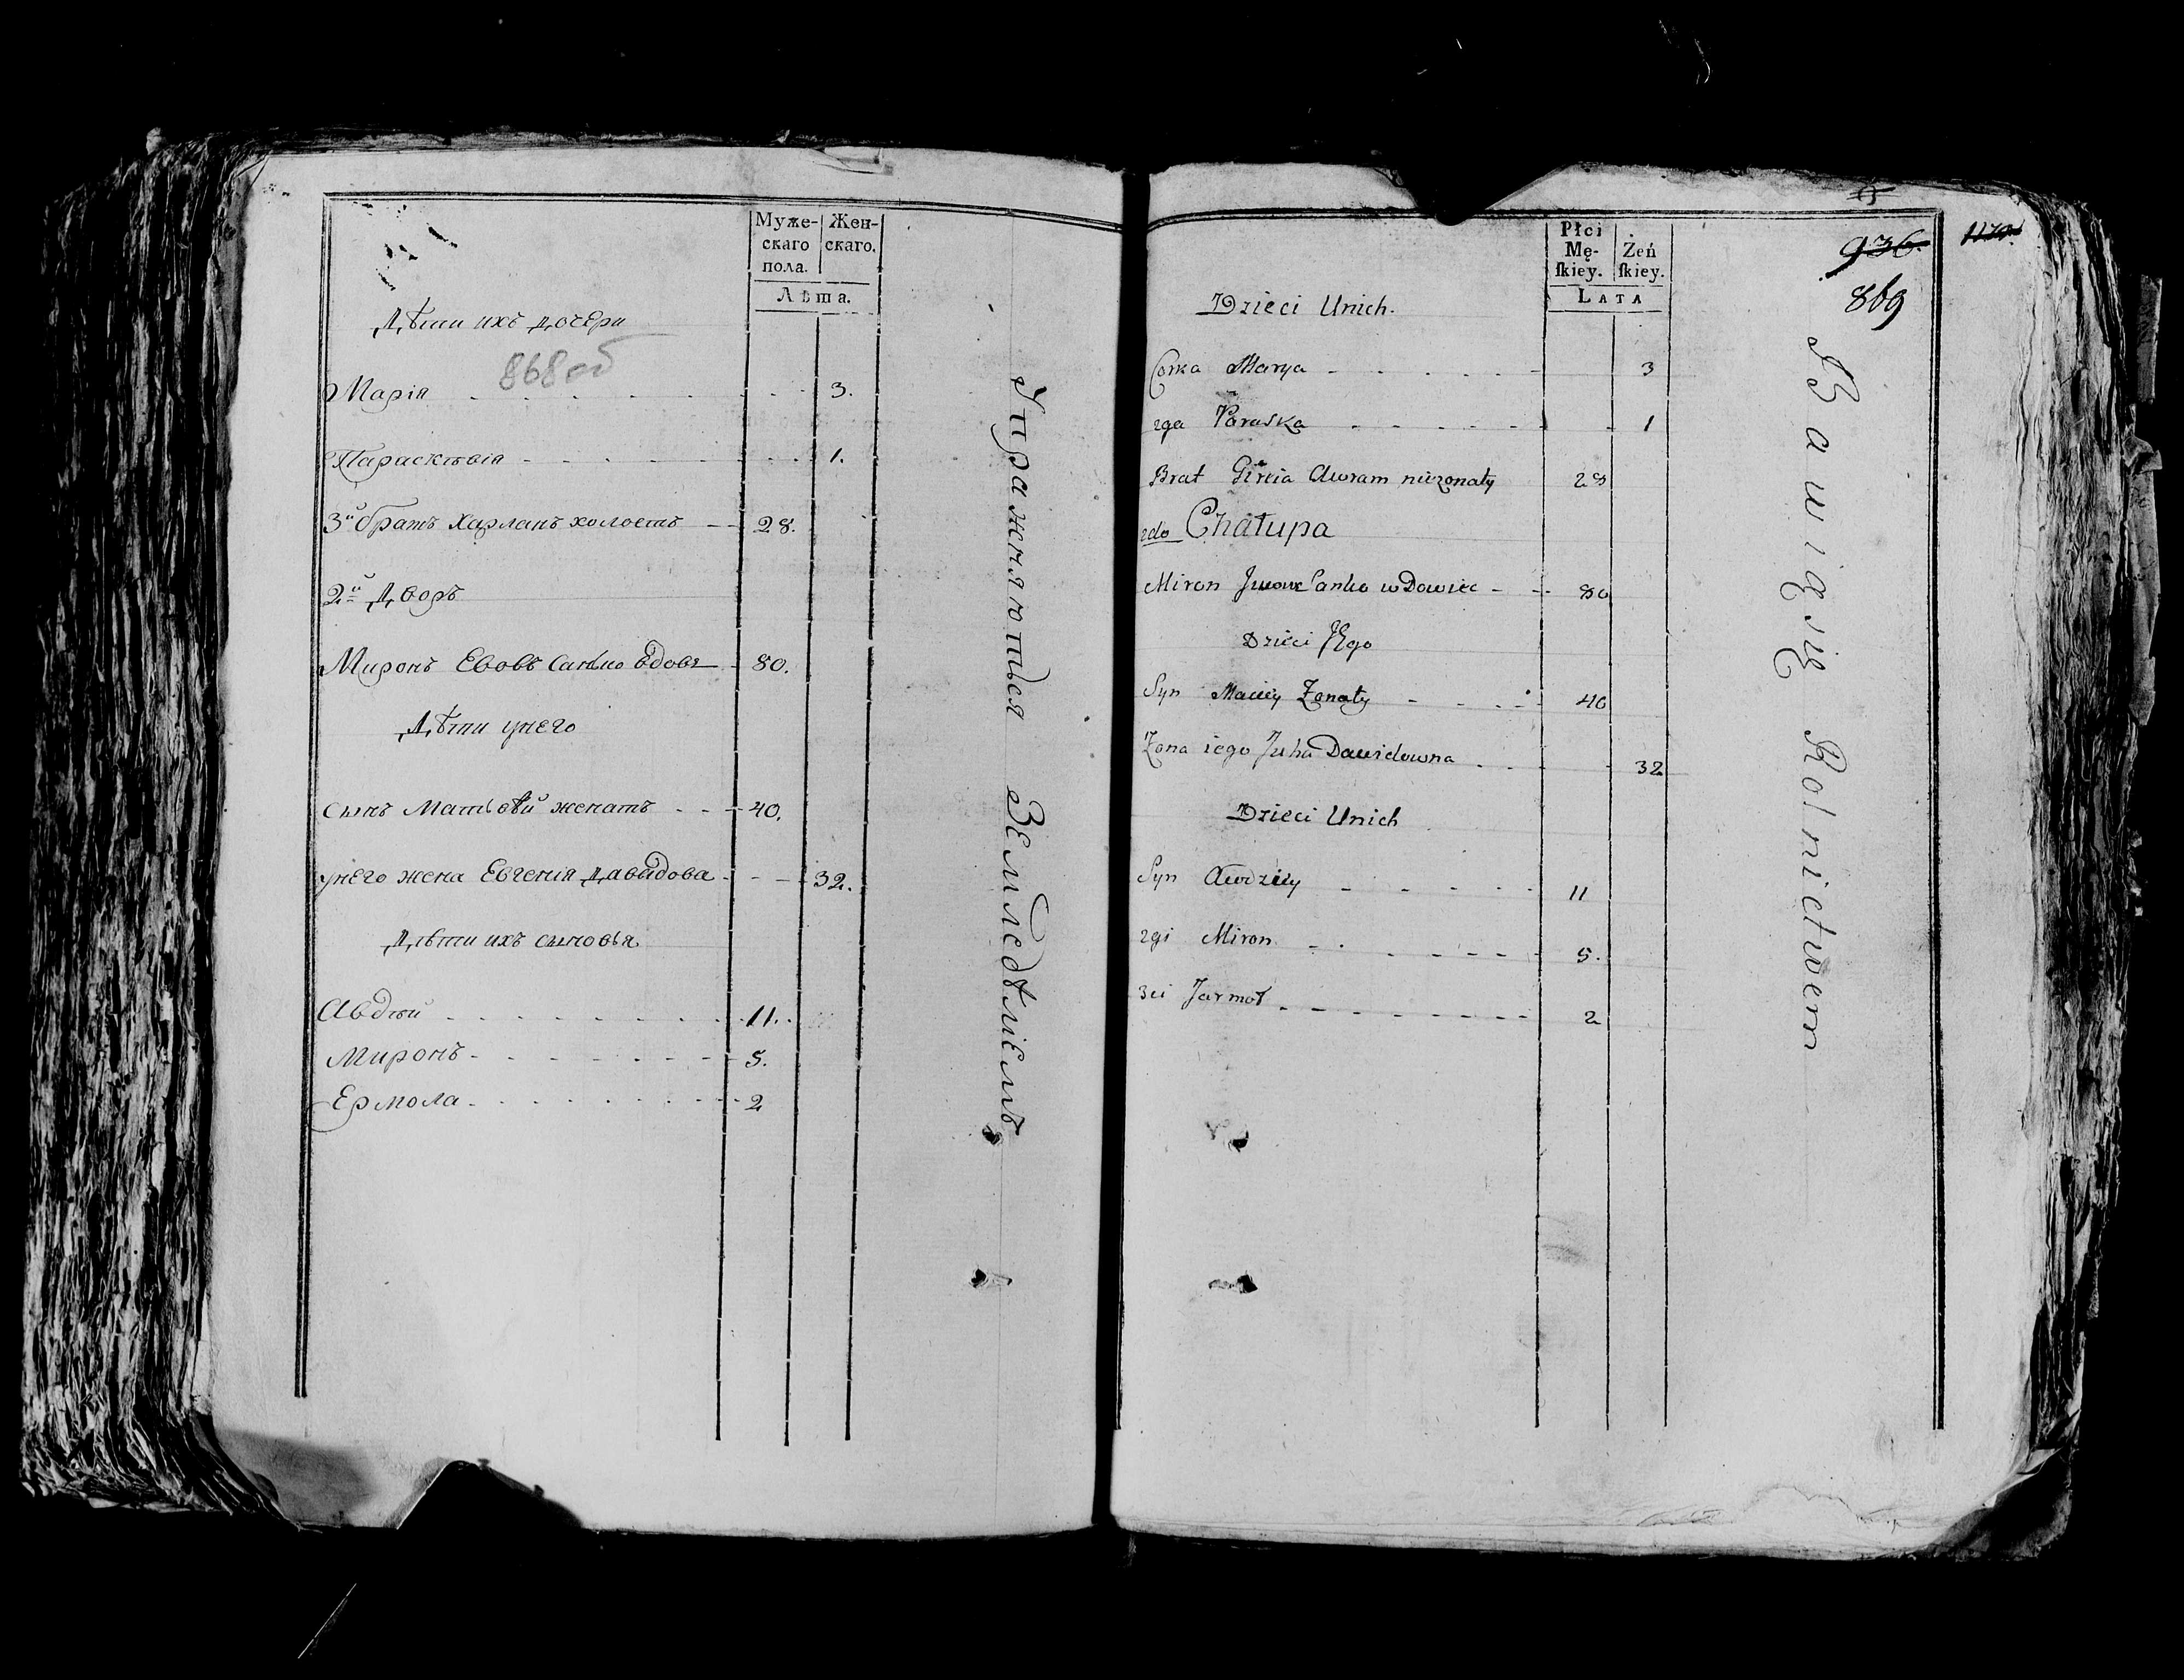 Муже-
скаго
пола.
Жен-
скаго.
Лѣта.
Дѣти ихъ дочери
868об
Марія 3.
Парасктвія 1.
3й братъ Харланъ холостъ 28.
2й Дворъ
Миронъ Евовъ вдовъ 80.
Дѣти унего
сынъ Матьѳѣй женатъ 40.
унего жена Евгенія Давыдова 32.
Дѣти ихъ сыновья
Авдѣй 11.
Миронъ 5.
Ермола 2
Упражняются Земледѣліемъ
Płci
Mę-
skiey.
Żeń
skiey.
Lata
936.
1170.
869
Dzieci Unich.
Corka Marya 3
2ga Paraska 1
Brat Awram niezonaty 28
2do Chałupa
Miron wDowiec 80
Dzieci Jego
Syn Maciey Zonaty 40
Zona iego Juha Dawidowna 32
Dzieci Unich
Syn Awdziey 11
2gi Miron 5.
3ci Jarmoł 2
Bawią się Rolnictwem